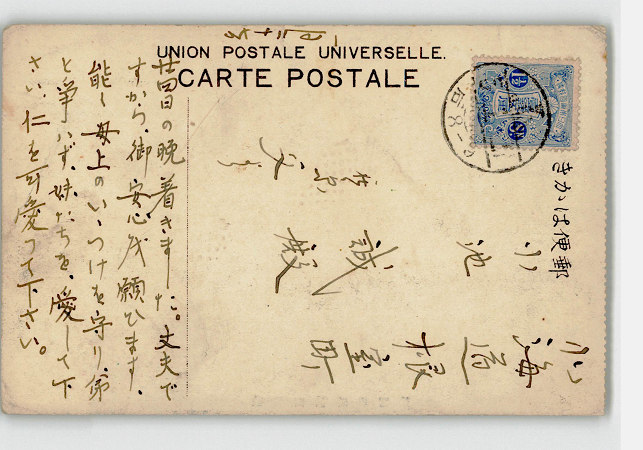 UNION POSTALE UNIVERSELLE.
CARTE POSTALE
郵便はかき
北海道根室町
小池誠殿
父より
廿四日の晩着きました。丈夫で
すから、御安心を願ひます。
能く母上のいゝつけを守り、弟
と爭はず、妹たちを、愛して下
さい。仁を可愛つて下さい。